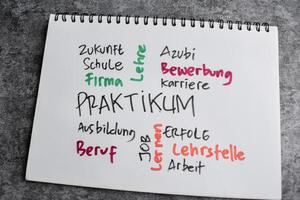 Zukunft
Schule
Firma
Lehre
Azubi
Bewerbung
Karriere
PRAKTIKUM
Ausbildung
Beruf
JOB
Lernen
ERFOLG
Lehrstelle
Arbeit